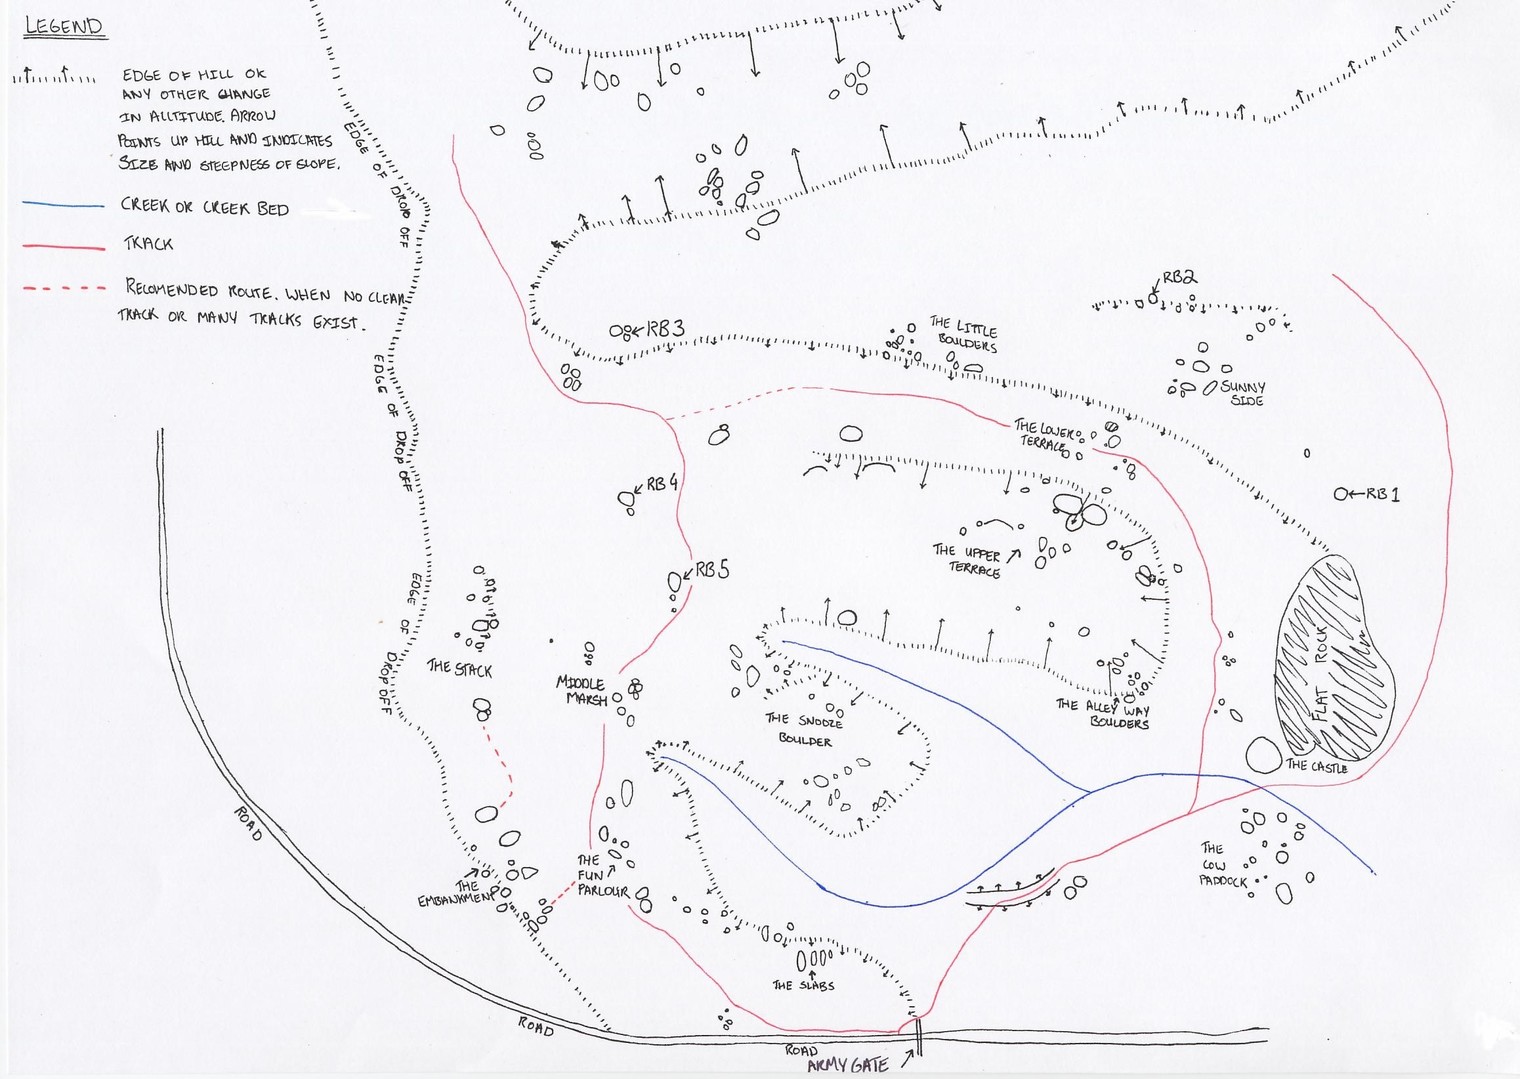 LEGEND
EDGE OF HILL OR
ANY OTHER CHANGE
IN ALLTITUDE. ARROW
POINTS UP HILL AND INDICATES
SIZE AND STEEPNESS OF SLOPE.
CREEK OR CREEK BED
TRACK
RECOMENDED ROUTE. WHEN NO CLEAR
TRACK OR MANY TRACKS EXIST.
EDGE OF DROP OFF
EDGE OF DROP OFF
EDGE OF DROP OFF
RB2
RB3
THE LITTLE
BOULDERS
SUNNY
SIDE
THE LOWER
TERRACE
RB4
RB1
THE UPPER
TERRACE
RB5
THE STACK
MIDDLE
MARSH
THE ALLEY WAY
BOULDERS
FLAT ROCK
THE SNOOZE
BOULDER
THE CASTLE
ROAD
THE
FUN
PARLOUR
THE
EMBANKMENT
THE
COW
PADDOCK
THE SLABS
ROAD
ROAD
ARMY GATE